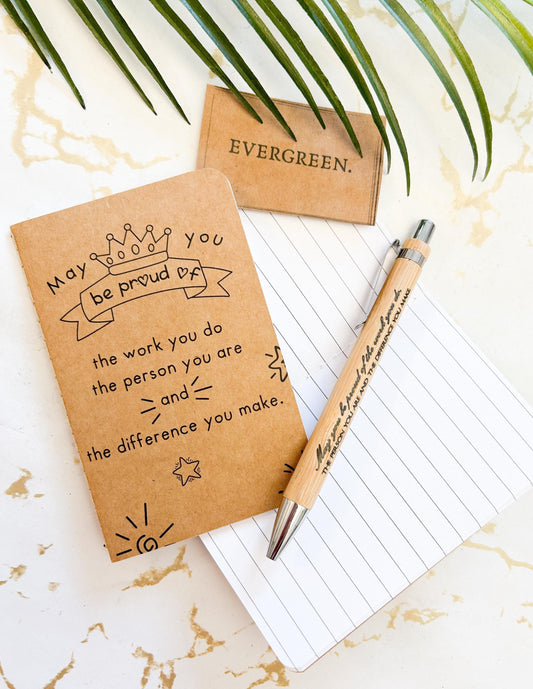 EVERGREEN.
May you
be proud of
the work you do
the person you are
and
the difference you make.
May you be proud of the work you do,
THE PERSON YOU ARE AND THE DIFFERENCE YOU MAKE